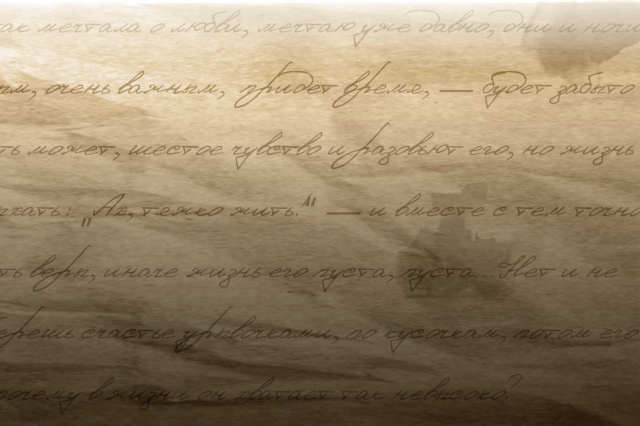 так мечтала о любви, мечтаю уже давно, дни и ночи
ым, очень важным, придет время, — будет забыто
ть может, шестое чувство и разовьют его, но жизнь
ыхать: „Ах, тяжко жить!" — и вместе с тем точно
ть веры, иначе жизнь его пуста, пуста... Нет и не
ерешь счастье урывочками, по кусочкам, потом его
почему в жизни он хватает так невысоко?